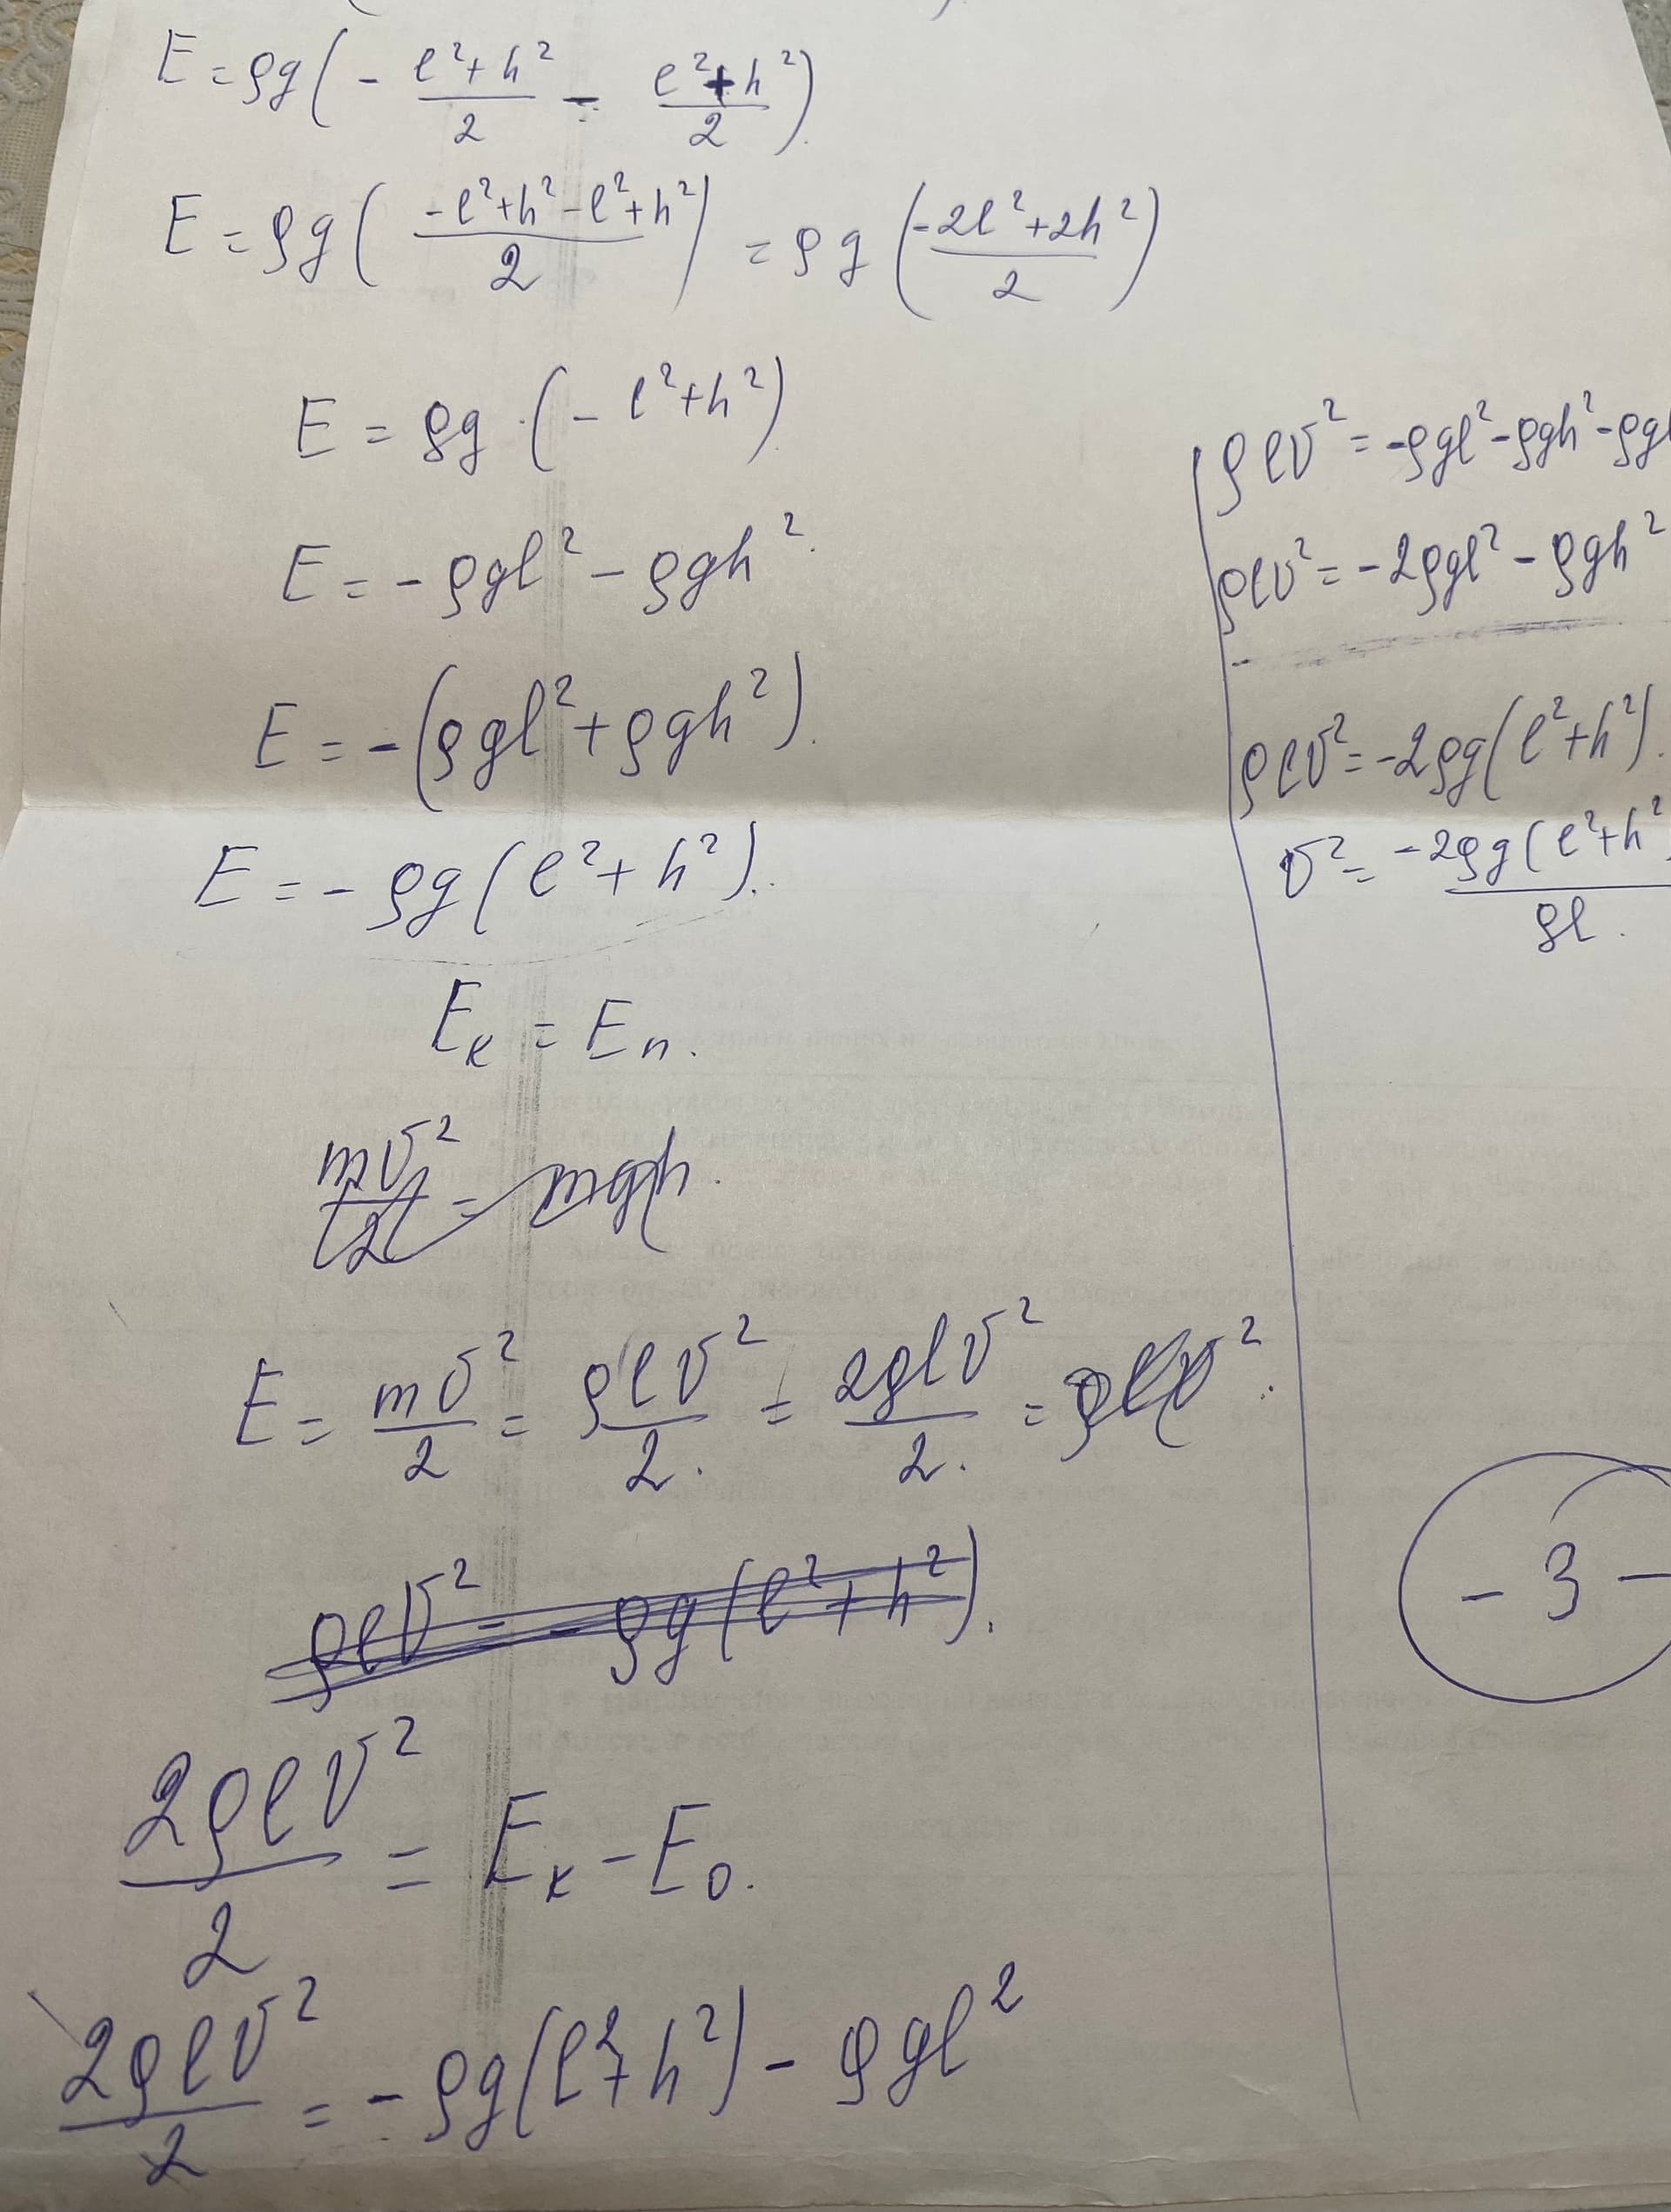 E = ρg(- l²+h²/2 - l²+h²/2).
E = ρg(-l²+h²-l²+h²/2) = ρg(-2l²+2h²/2)
E = ρg·(-l²+h²).
E = -ρgl² - ρgh².
E = -(ρgl²+ρgh²).
E = -ρg(l²+h²)..
Eк = Eп.
mv²/2 = mgh.
E = mv²/2 = ρlv²/2. = 2ρlv²/2. = ρlv².
ρlv² = -ρg(l²+h²).
2ρlv²/2 = Eк - E₀.
2ρlv²/2 = -ρg(l²+h²) - ρgl²
ρlv² = -ρgl²-ρgh²-ρgl
ρlv² = -2ρgl² - ρgh²
ρlv² = -2ρg(l²+h²).
v² = -2ρg(l²+h²/ρl.
-3-